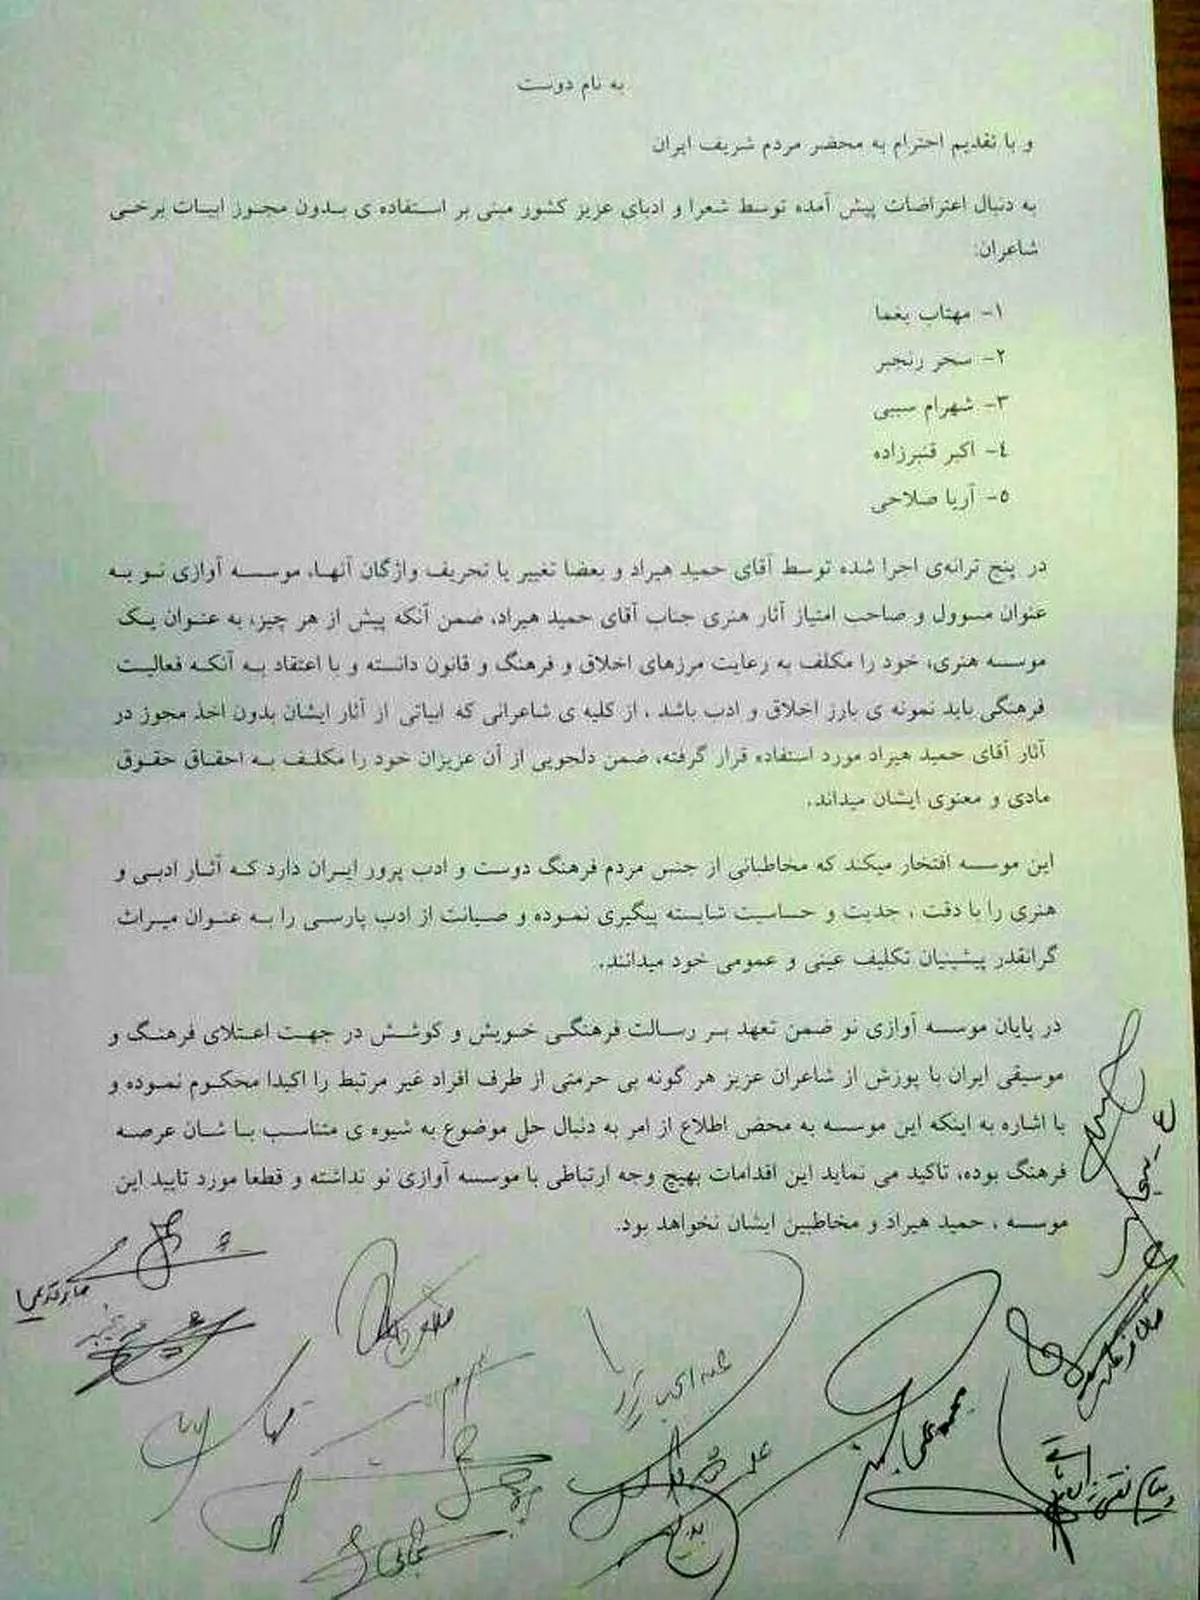 به نام دوست
و با تقدیم احترام به محضر مردم شریف ایران
به دنبال اعتراضات پیش آمده توسط شعرا و ادبای عزیز کشور مبنی بر استفاده ی بدون مجوز ابیات برخی
شاعران:
۱- مهتاب یغما
۲- سحر رنجبر
۳- شهرام سببی
٤- اکبر قنبرزاده
۵- آریا صلاحی
در پنج ترانه‌ی اجرا شده توسط آقای حمید هیراد و بعضا تغییر یا تحریف واژگان آنها، موسسه آوازی نو به
عنوان مسوول و صاحب امتیاز آثار هنری جناب آقای حمید هیراد، ضمن آنکه پیش از هر چیز، به عنوان یک
موسسه هنری، خود را مکلف به رعایت مرزهای اخلاق و فرهنگ و قانون دانسته و با اعتقاد به آنکه فعالیت
فرهنگی باید نمونه ی بارز اخلاق و ادب باشد ، از کلیه ی شاعرانی که ابیاتی از آثار ایشان بدون اخذ مجوز در
آثار آقای حمید هیراد مورد استفاده قرار گرفته، ضمن دلجویی از آن عزیزان خود را مکلف به احقاق حقوق
مادی و معنوی ایشان میداند.
این موسسه افتخار میکند که مخاطبانی از جنس مردم فرهنگ دوست و ادب پرور ایران دارد که آثار ادبی و
هنری را با دقت ، جدیت و حساسیت شایسته پیگیری نموده و صیانت از ادب پارسی را به عنوان میراث
گرانقدر پیشینیان تکلیف عینی و عمومی خود میدانند.
در پایان موسسه آوازی نو ضمن تعهد بر رسالت فرهنگی خویش و کوشش در جهت اعتلای فرهنگ و
موسیقی ایران با پوزش از شاعران عزیز هر گونه بی حرمتی از طرف افراد غیر مرتبط را اکیدا محکوم نموده و
با اشاره به اینکه این موسسه به محض اطلاع از امر به دنبال حل موضوع به شیوه ی متناسب با شان عرصه
فرهنگ بوده، تاکید می نماید این اقدامات بهیچ وجه ارتباطی با موسسه آوازی نو نداشته و قطعا مورد تایید این
موسسه ، حمید هیراد و مخاطبین ایشان نخواهد بود.